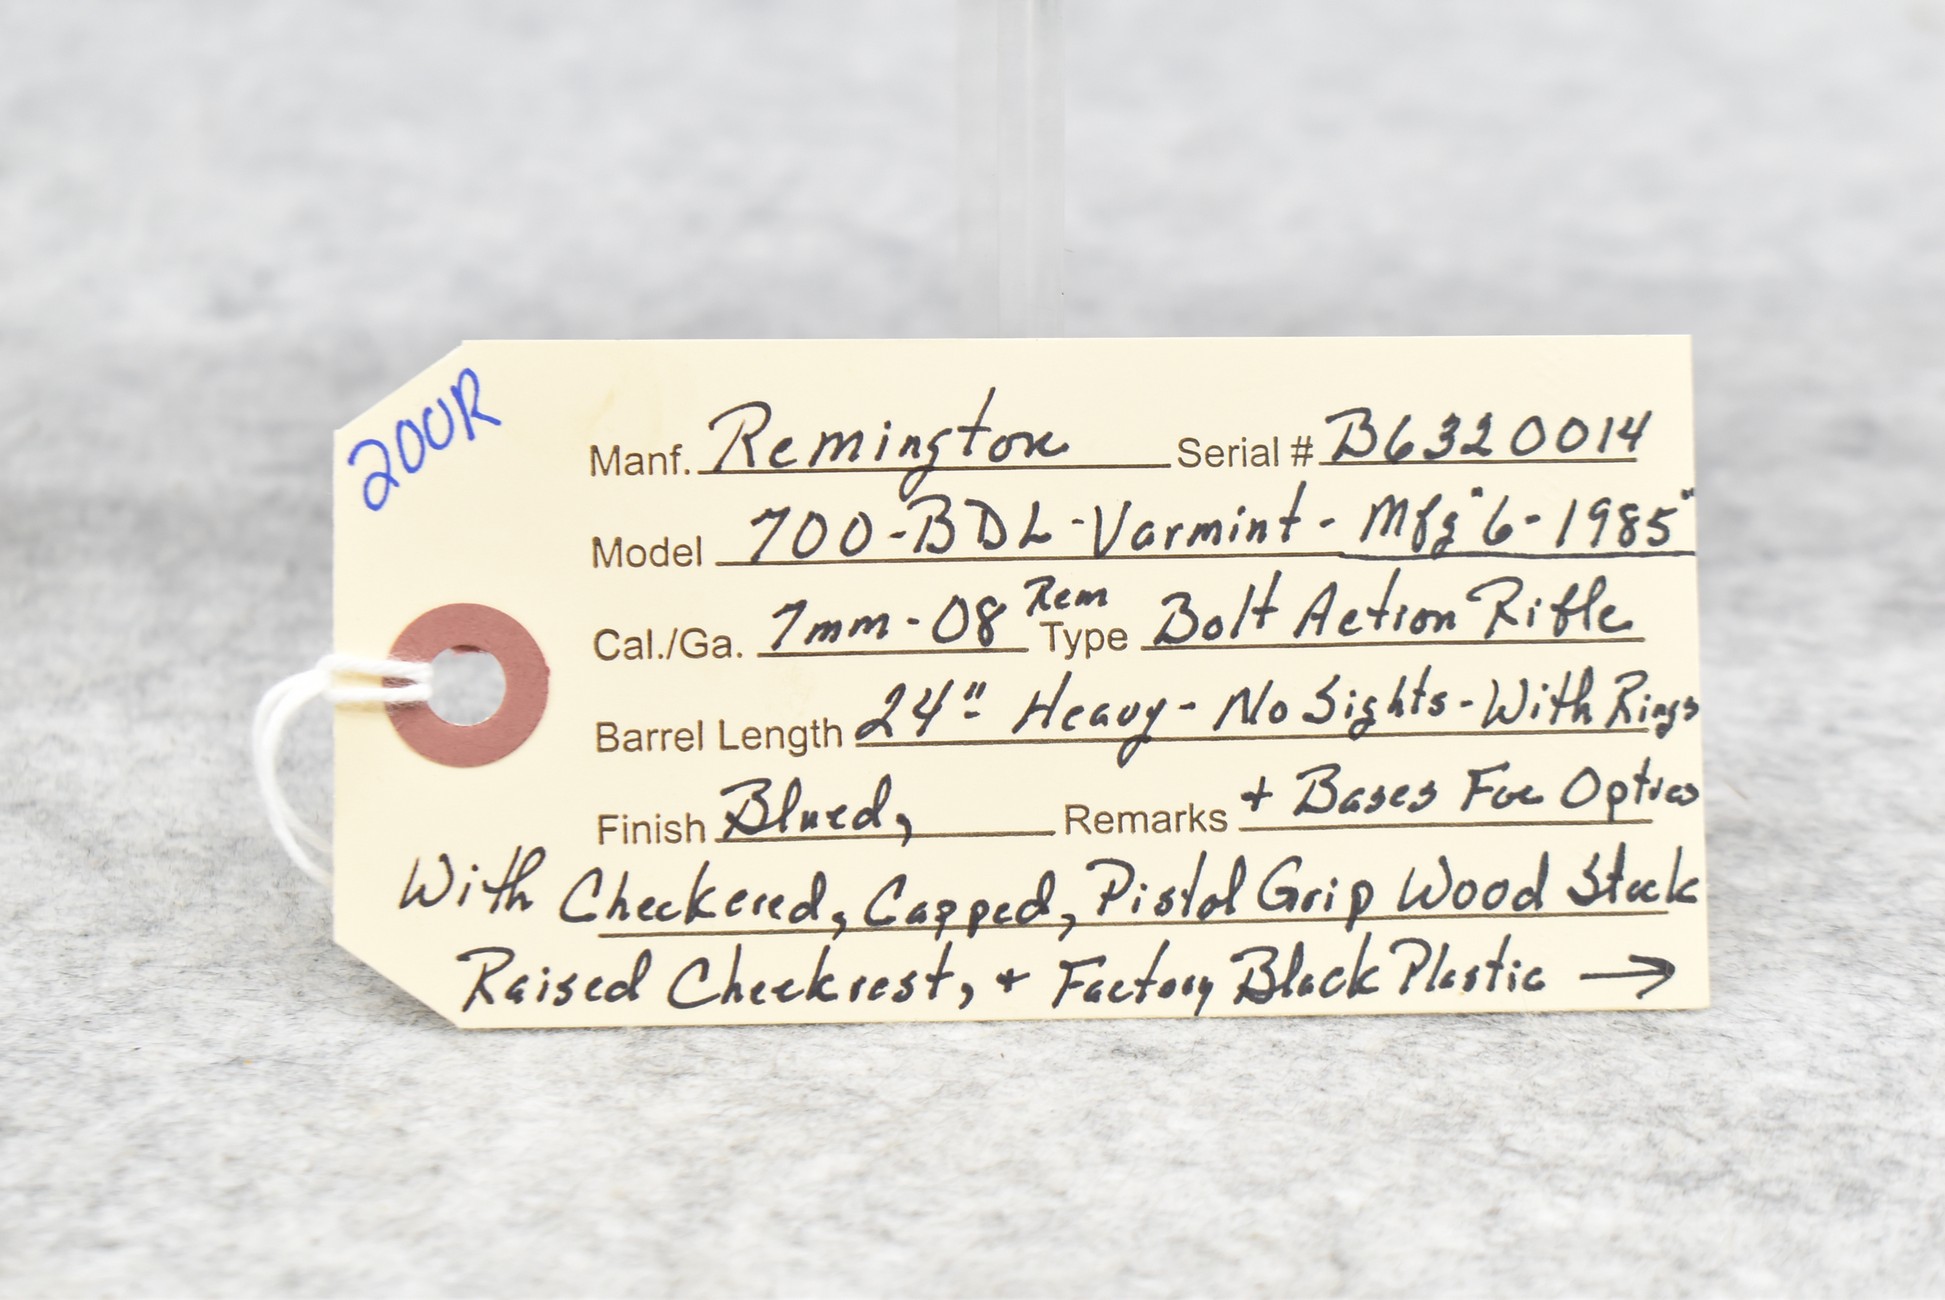 200R
Manf. Remington Serial # B6320014
Model 700-BDL-Varmint - Mfg "6-1985"
Cal./Ga. 7mm-08 Rem Type Bolt Action Rifle
Barrel Length 24" Heavy - No Sights - With Rings
Finish Blued, Remarks + Bases For Optics
With Checkered, Capped, Pistol Grip Wood Stock
Raised Cheekrest, + Factory Black Plastic →